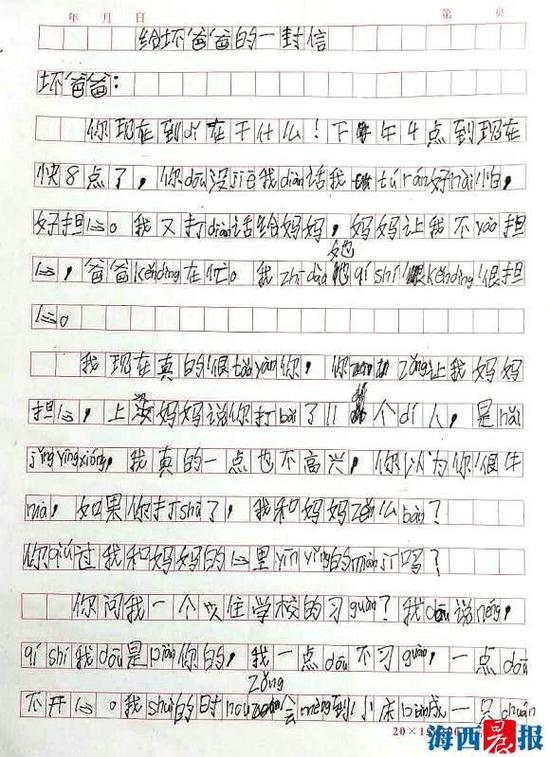 年 月 日 第 页
给坏爸爸的一封信
坏爸爸:
你现在到dǐ在干什么!下午4点到现在
快8点了,你dōu没jiē我diàn话我tū rán好hài怕,
好担心。我又打diàn话给妈妈,妈妈让我不yào担
心,爸爸kěnding在忙。我zhī dào她qí shí kěnding很担
心。
我现在真的很tǎo yàn你,你zǒng让我妈妈
担心,上次妈妈说你打bài了11个dí人,是hǎi
jūn yīng xióng,我真的一点也不高兴,你以为你很牛
ma,如果你打shū了,我和妈妈zěn么bàn?
你qiú过我和妈妈的心里yīn yǐng的miàn jī吗?
你问我一个人住学校的习guàn?我dōu说néng,
qí shí我dōu是piàn你的,我一点dōu不习guàn,一点dōu
不开心。我shuì的时hou zǒng会mèng到小床biàn成一只chuán
20×15=300
海西晨报